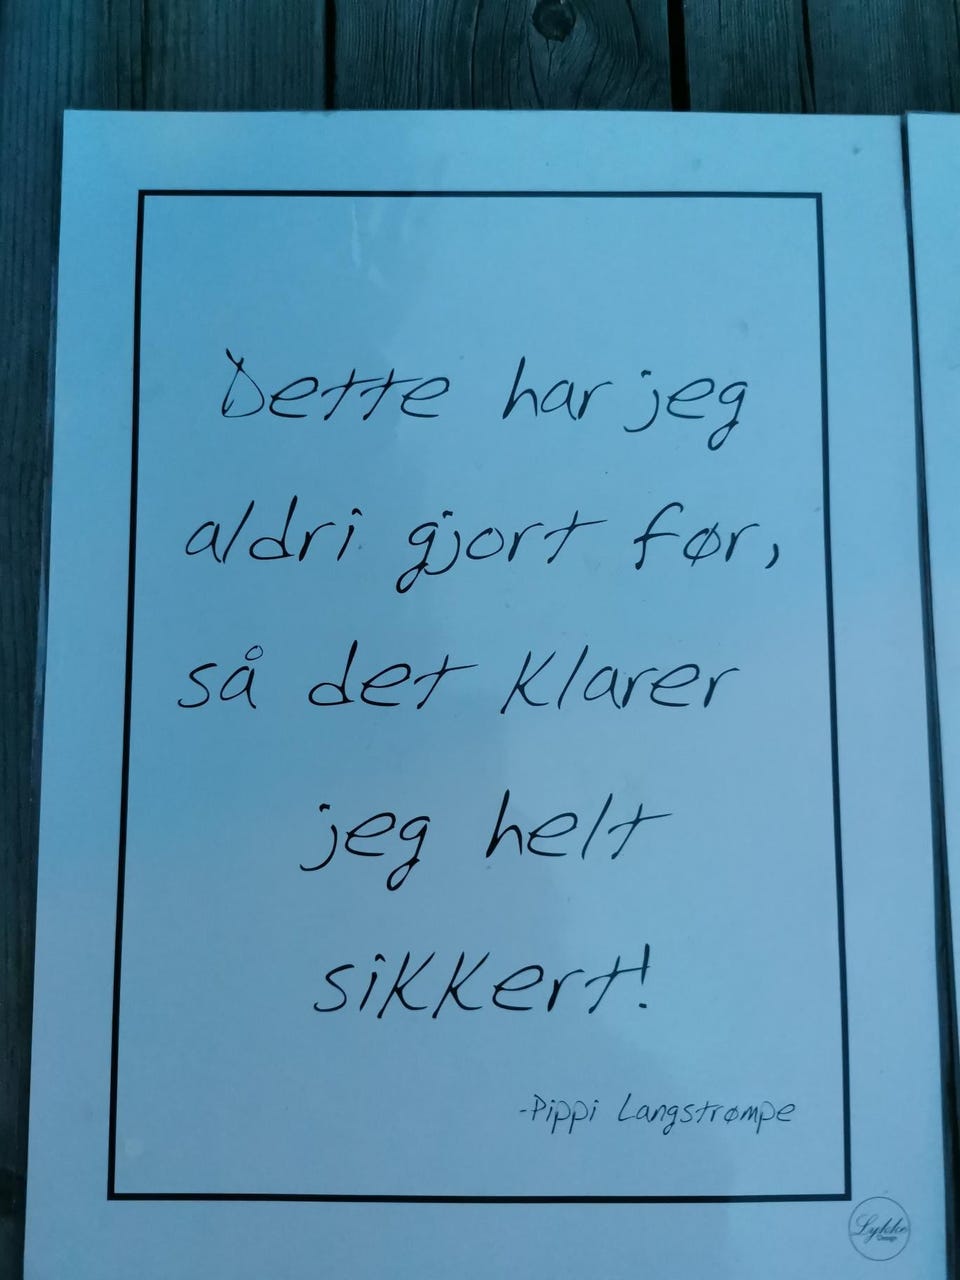 Dette har jeg
aldri gjort før,
så det klarer
jeg helt
sikkert!
-Pippi Langstrømpe
Lykke
Design